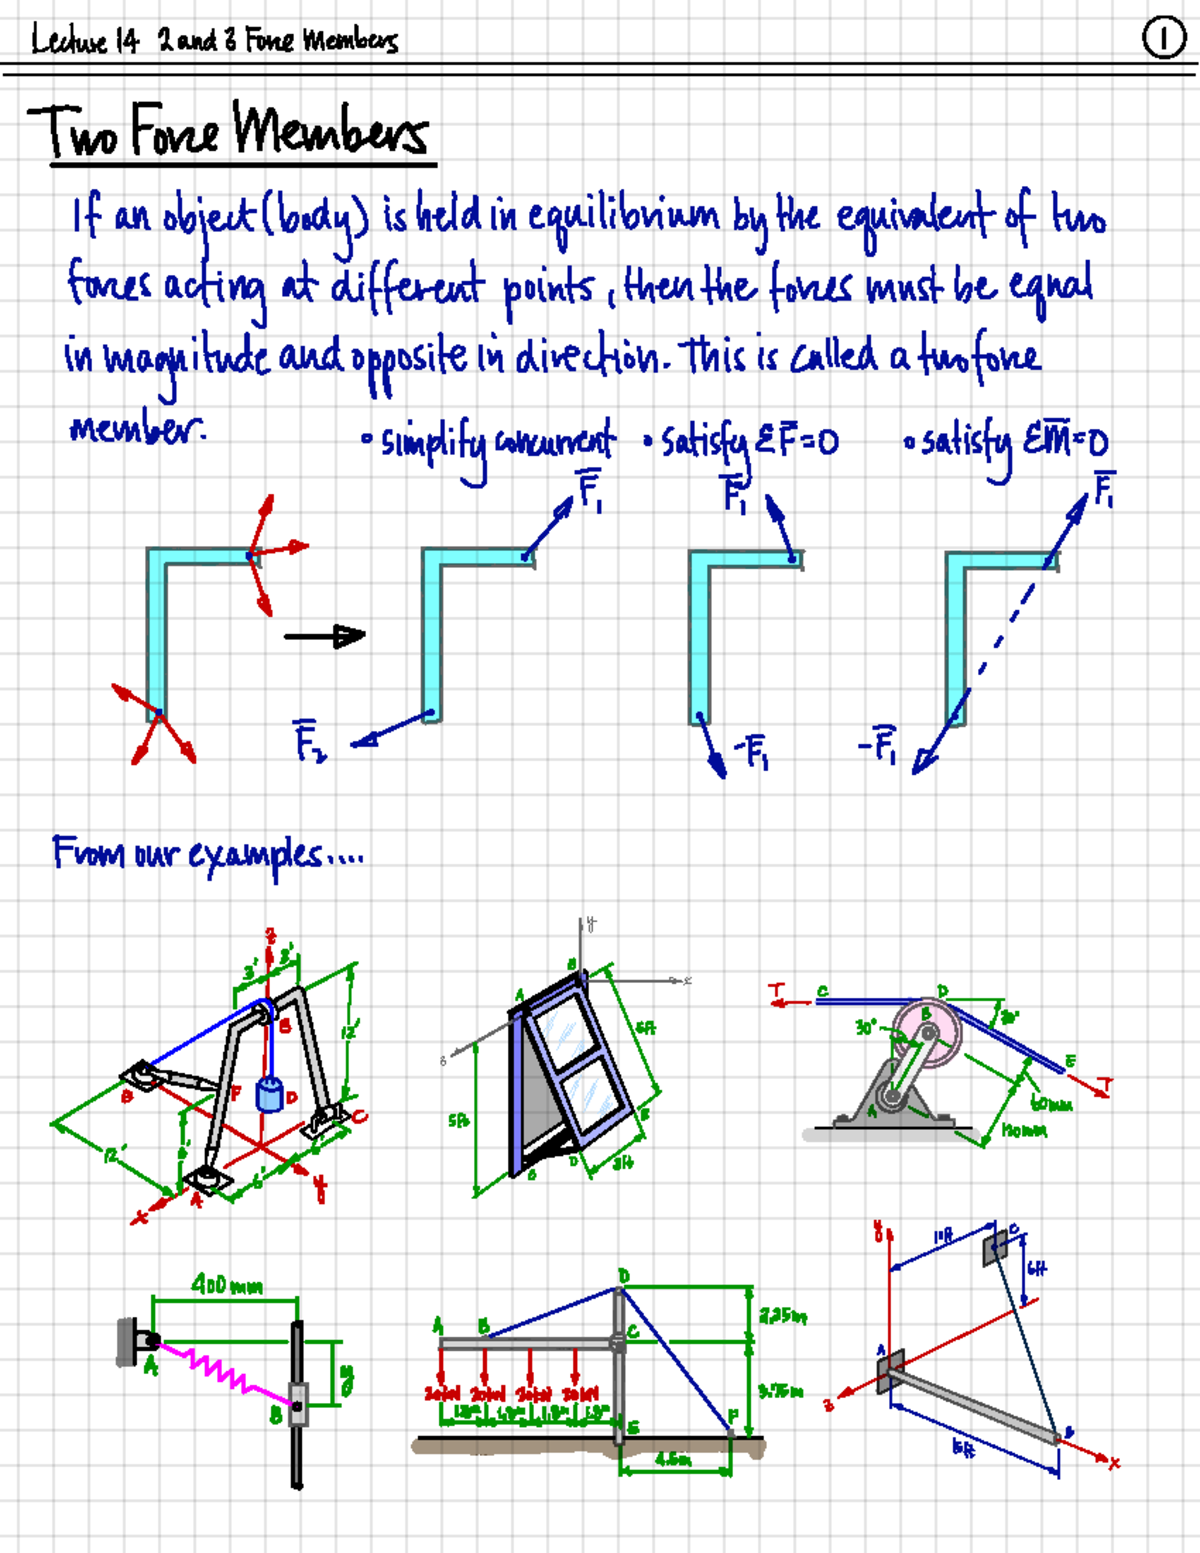 Lecture 14 2 and 3 Force Members
1
Two Force Members
If an object (body) is held in equilibrium by the equivalent of two
forces acting at different points, then the forces must be equal
in magnitude and opposite in direction. This is called a two force
member.
• simplify concurrent • satisfy ΣF̅=0 • satisfy ΣM̅=0
F̅₁ F̅₁ F̅₁
F̅₂ -F̅₁ -F̅₁
From our examples....
z
3' 3'
B
12'
B F D C
12'
6'
A
x y
y
B x
A
5ft
5ft
E
C D
3ft
T C D
30° B
E
A T
60mm
120mm
400mm
A
B
D
A B C
2.25m
20kN 20kN 20kN 20kN
1.8m 1.8m 1.8m 1.8m
3.75m
E F
4.5m
y
11ft C
6ft
A
z
B
x